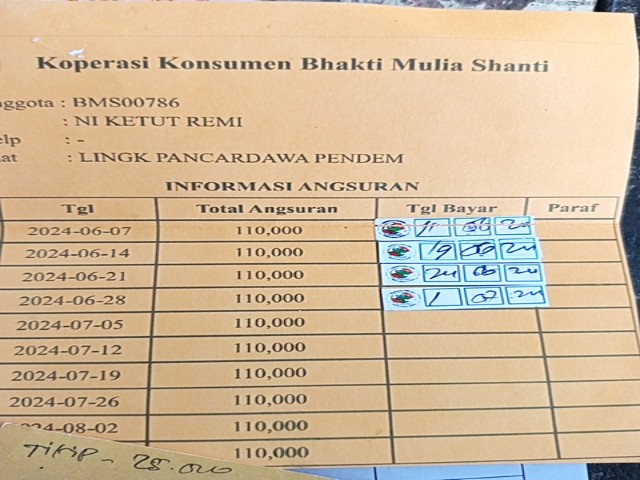 Koperasi Konsumen Bhakti Mulia Shanti
nggota : BMS00786
: NI KETUT REMI
elp : -
at : LINGK PANCARDAWA PENDEM
INFORMASI ANGSURAN
Tgl Total Angsuran Tgl Bayar Paraf
2024-06-07 110,000 11 06 24
2024-06-14 110,000 19 06 24
2024-06-21 110,000 24 06 24
2024-06-28 110,000 1 24
2024-07-05 110,000
2024-07-12 110,000
2024-07-19 110,000
2024-07-26 110,000
24-08-02 110,000
110,000
TiTiP - 25.000